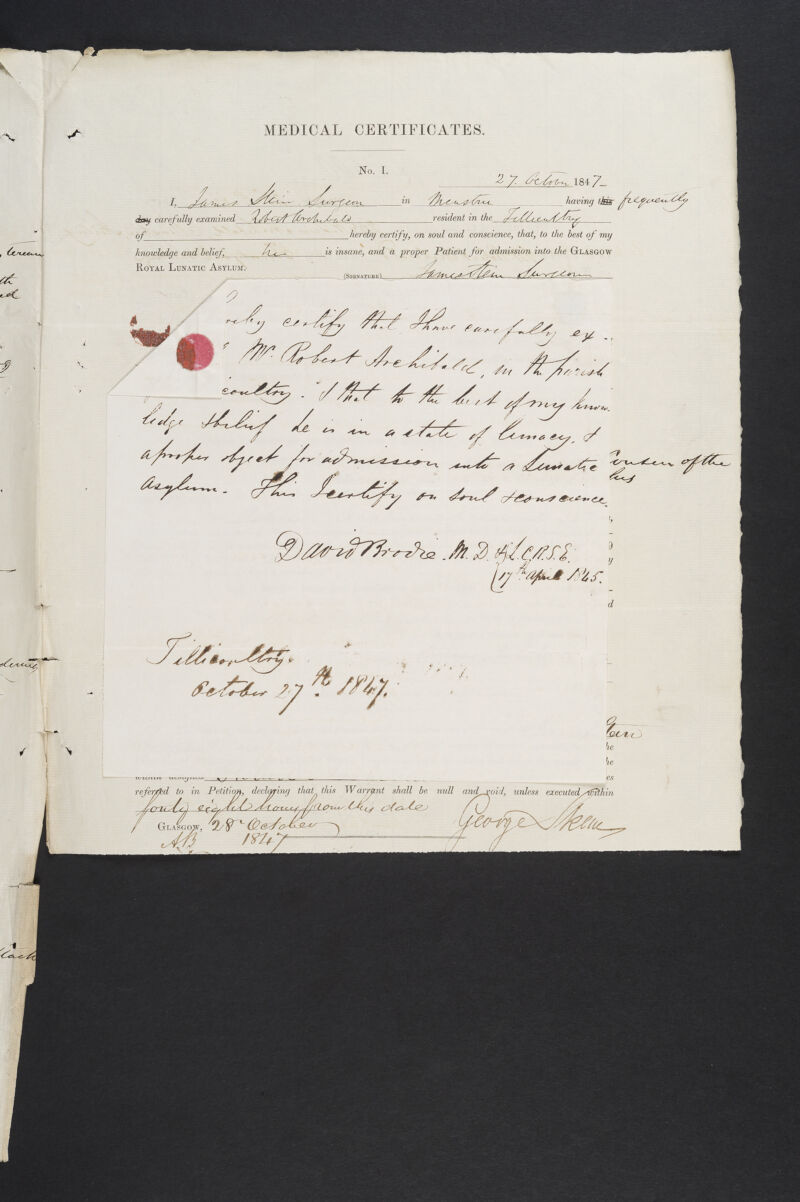 MEDICAL CERTIFICATES.
No. I.
27 October 1847
I, James Stein Surgeon in Menstrie having this frequently
day carefully examined Robert Archibald resident in the Tillicoultry
of hereby certify, on soul and conscience, that, to the best of my
knowledge and belief, he is insane, and a proper Patient for admission into the GLASGOW
ROYAL LUNATIC ASYLUM.
(SIGNATURE) James Stein Surgeon
reby certify that I have carefully ex-
Mr. Robert Archibald, in the parish
coultry. & that to the best of my know-
ledge & belief he is in a state of lunacy, &
a proper object for admission into a Lunatic
Asylum. This I certify on soul & conscience.
of the
David Brodie. M.D. & L.C.R.S.E.
(17th April 1845.
Tillicoultry.
October 27th. 1847.
referred to in Petition, declaring that this Warrant shall be null and void, unless executed within
forty eight hours from this date
GLASGOW, 28 October
1847
George Skene